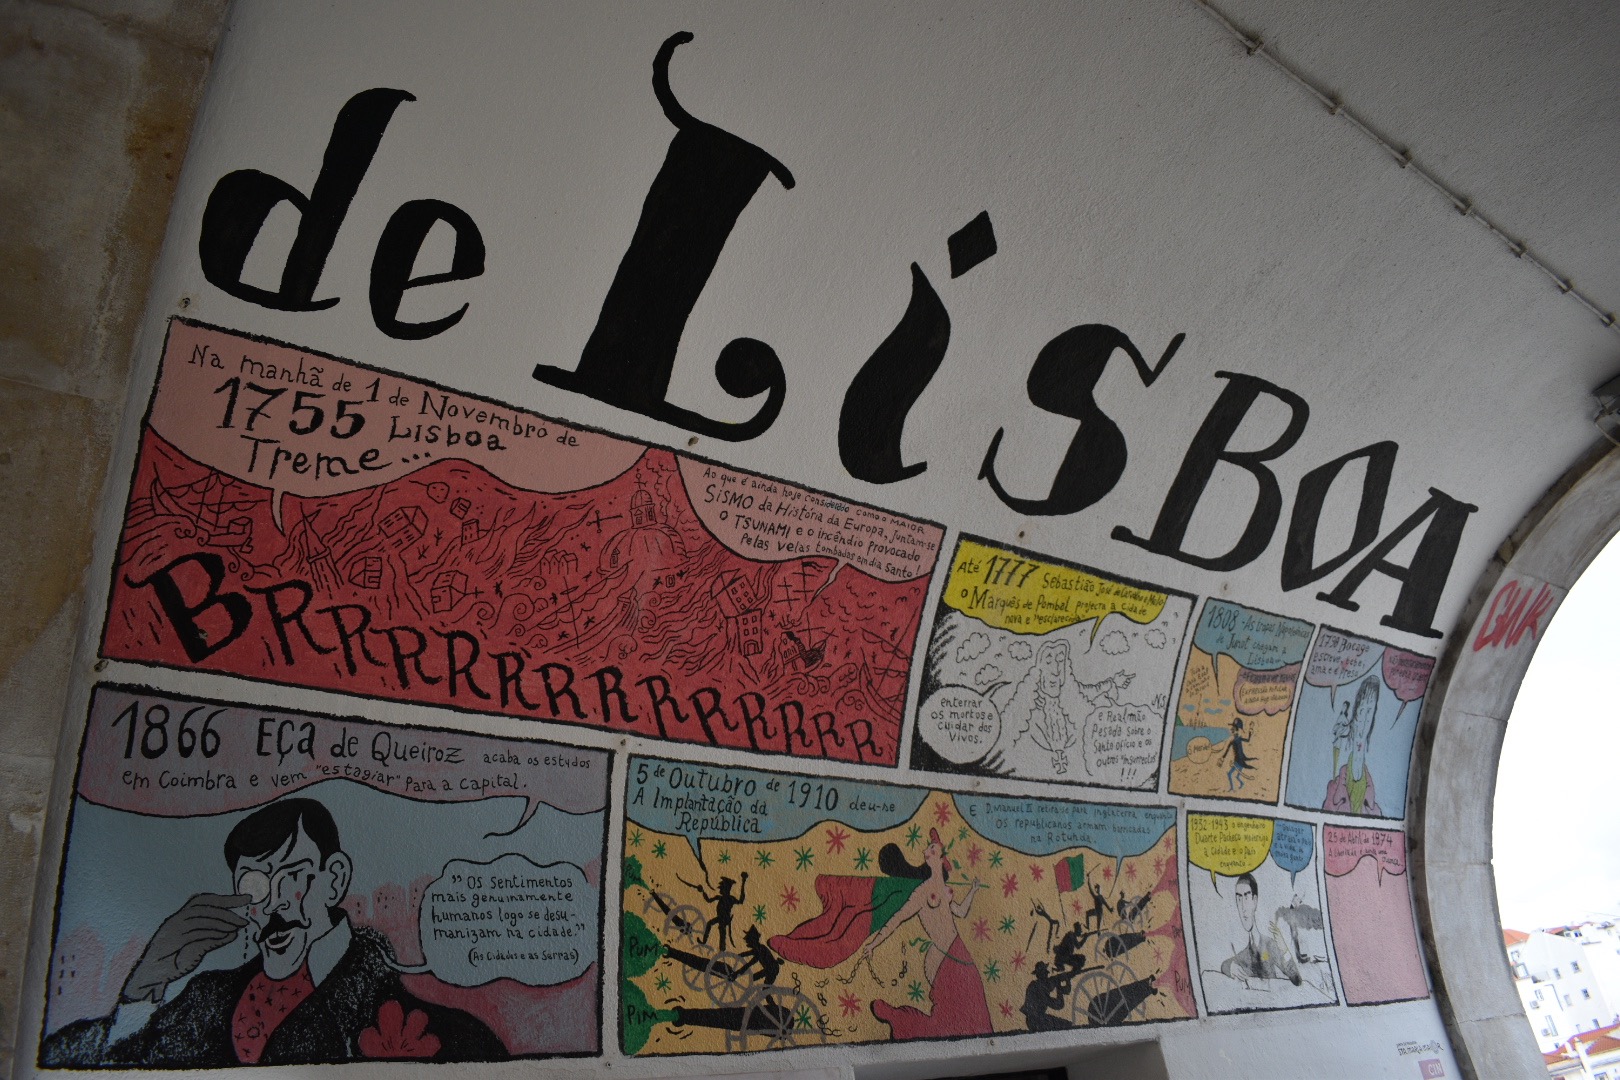 de LisBOA
Na manhã de 1 de Novembro de
1755 Lisboa
Treme...
Ao que é ainda hoje considerado como o MAIOR
SISMO da História da Europa, juntam-se
o TSUNAMI e o incêndio provocado
Pelas velas tombadas em dia Santo!
BRRRRRRRRRRRRR
Até 1777 Sebastião José de Carvalho e Melo
o Marquês de Pombal projecta a cidade
nova e "esclarecida"
enterrar
os mortos e
cuidar dos
vivos.
e Real mão
Pesada sobre o
Santo ofício e os
outros "insurrectos"
!!!
N.S
1808 - As tropas Napoleónicas
de Junot chegam a
Lisboa
Bocage
esteve, bebe,
ama e Preso
1866 Eça de Queiroz acaba os estudos
em Coimbra e vem "estagiar" Para a Capital.
" Os Sentimentos
mais genuinamente
humanos logo se desu-
manizam na cidade."
(As Cidades e as Serras)
5 de Outubro de 1910 deu-se
A Implantação da
República
E D. Manuel II retira-se para Inglaterra enquanto
os republicanos armam barricadas
na Rotunda.
PUM
PIM
1932-1943 o engenheiro
Duarte Pacheco
a Cidade e o País
25 de Abril de 1974